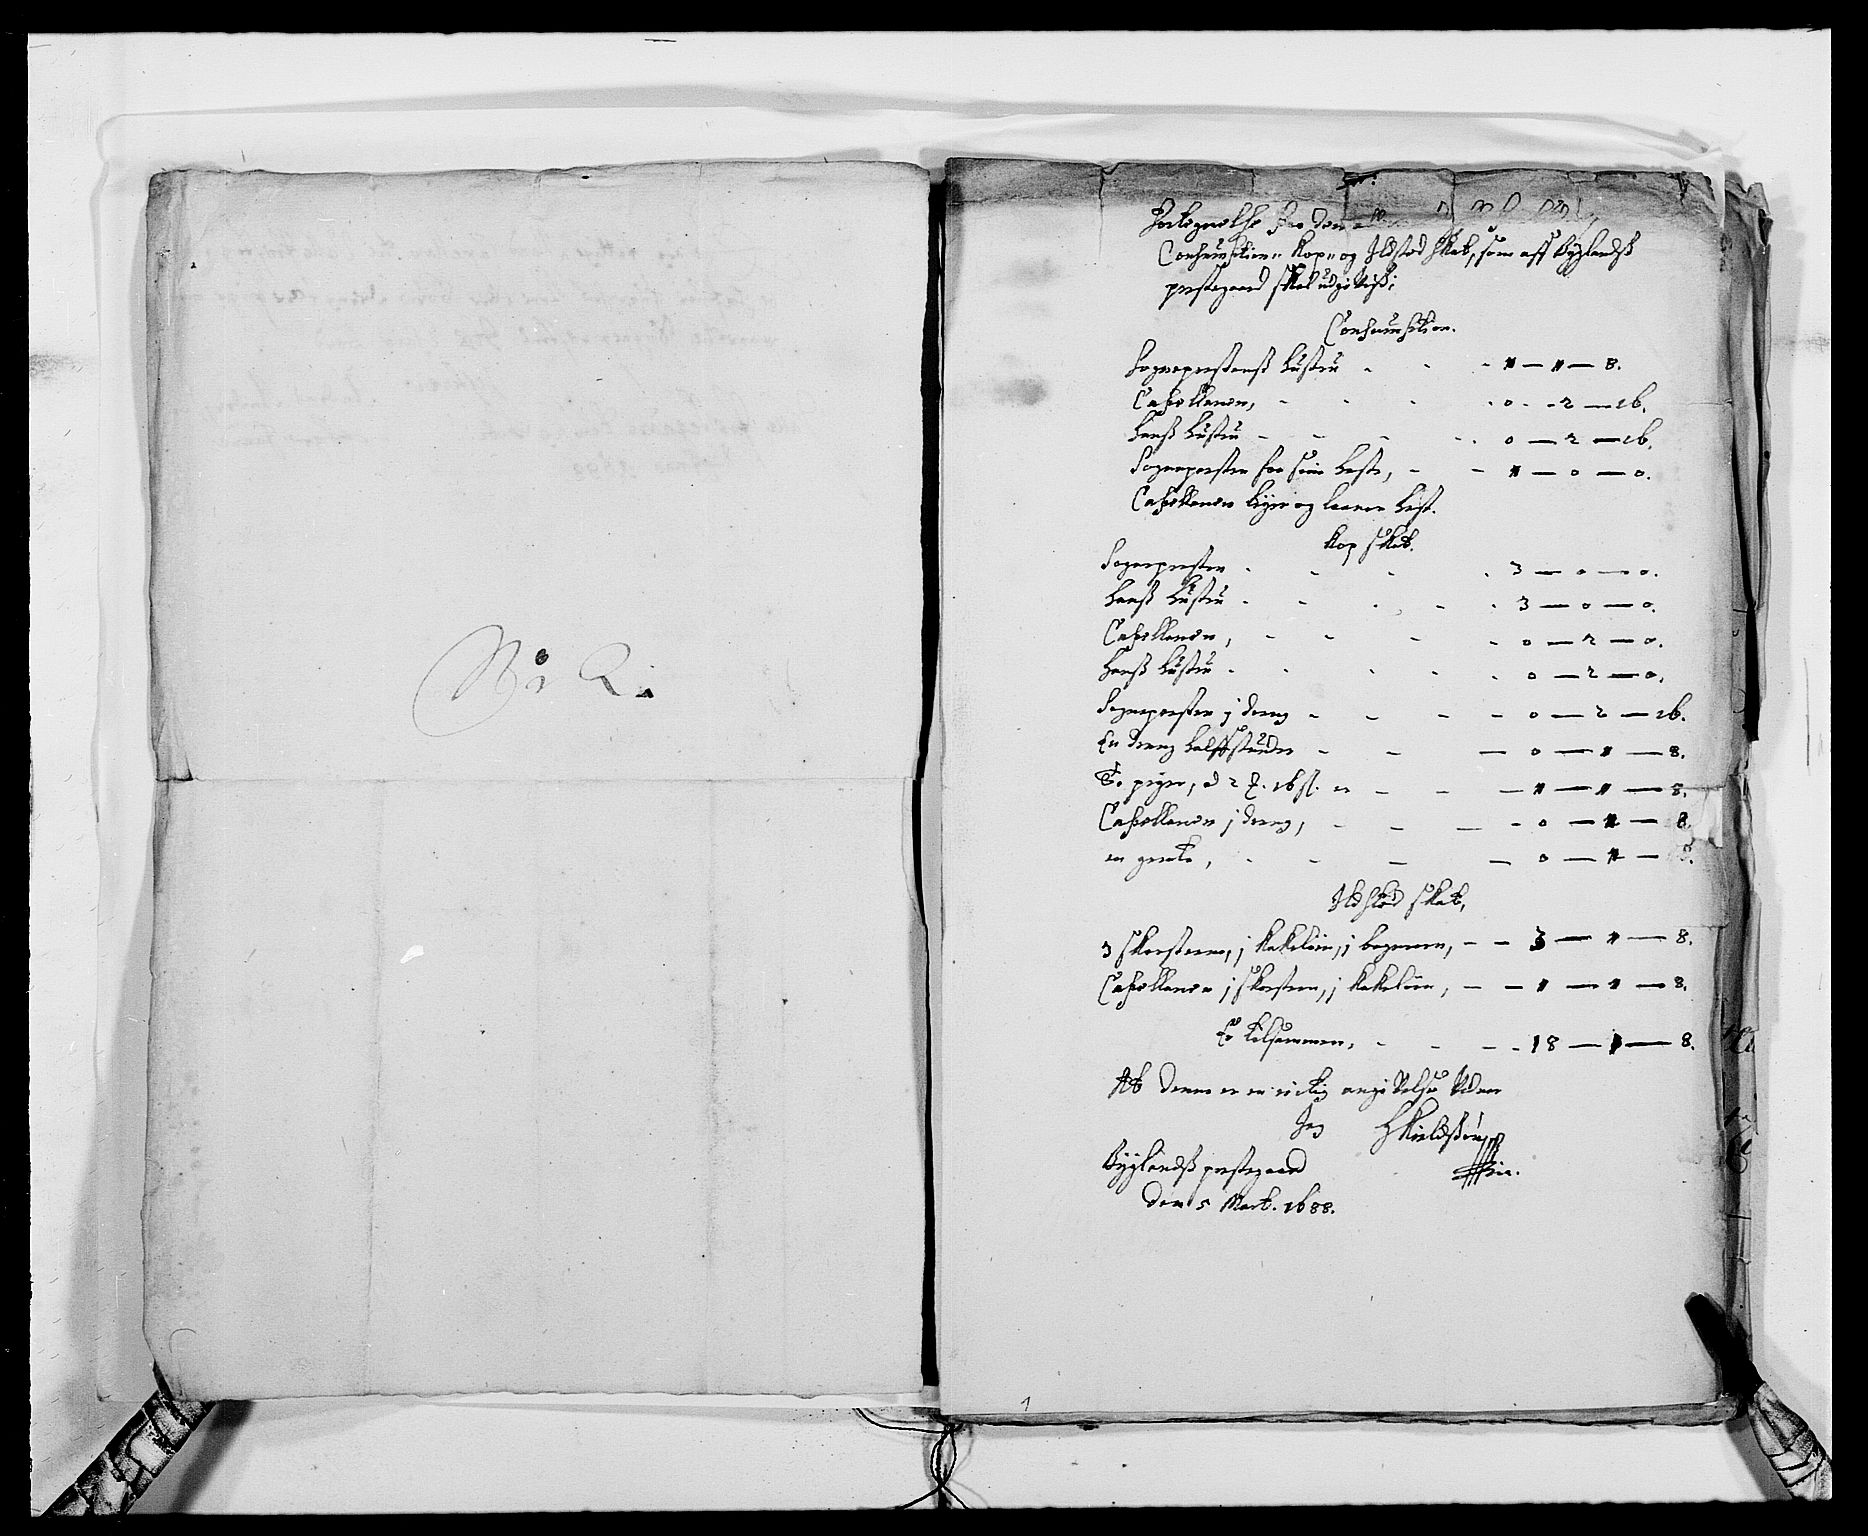 No 2.
Fortegnelse paa den
Consumption- Kop- og Ildsted skat, som aff Byglandsß
prestegaard skal udgivisß;
Consumption.
Sogneprestensß hustru - - - 1 — 1 — 8.
Capellanen, - - - - 0 - 2 — 16.
hansß hustru - - - - 0 — 2 — 16.
Sognepresten for sin hest, - - 1 — 0 — 0.
Capellanen leyer og laaner hest.
Kop skat.
Sognepresten - - - - 3 — 0 — 0.
hansß hustru - - - - 3 — 0 — 0.
Capellanen, - - - - 0 — 2 — 0.
hansß hustru - - - - 0 — 2 — 0.
Sognepresten j dreng - - - - 0 — 2 — 16.
En dreng halffstuder - - — 0 — 1 — 8.
To piger, á 2 16 ß. er - - — 1 — 1 — 8.
Capellanen j dreng, - - — - 0 — 1 — 8.
en gente, - - — — 0 — 1 — 8.
Ildsted skat,
3 skorsteene, j kakelovn, j bagerovn, - - 3 — 1 — 8.
Capellanen j skorsteen, j kakelovn, - - 1 — 1 — 8.
Er tilsammen, - - - - 18 — 1 — 8.
At denne er en rictig angivelse vidner
Jeg HKieldsßøn
Byglandsß prestegaard
den 5 Mart. 1688.
1